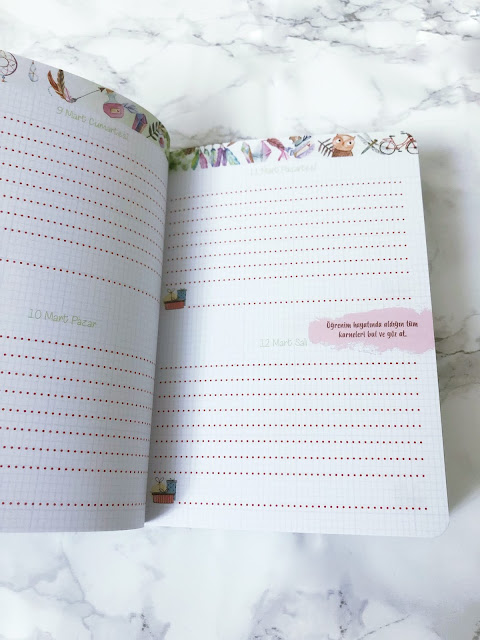 9 Mart Cumartesi
10 Mart Pazar
11 Mart Pazartesi
12 Mart Salı
Öğrenim hayatında aldığın tüm
karneleri bul ve göz at.